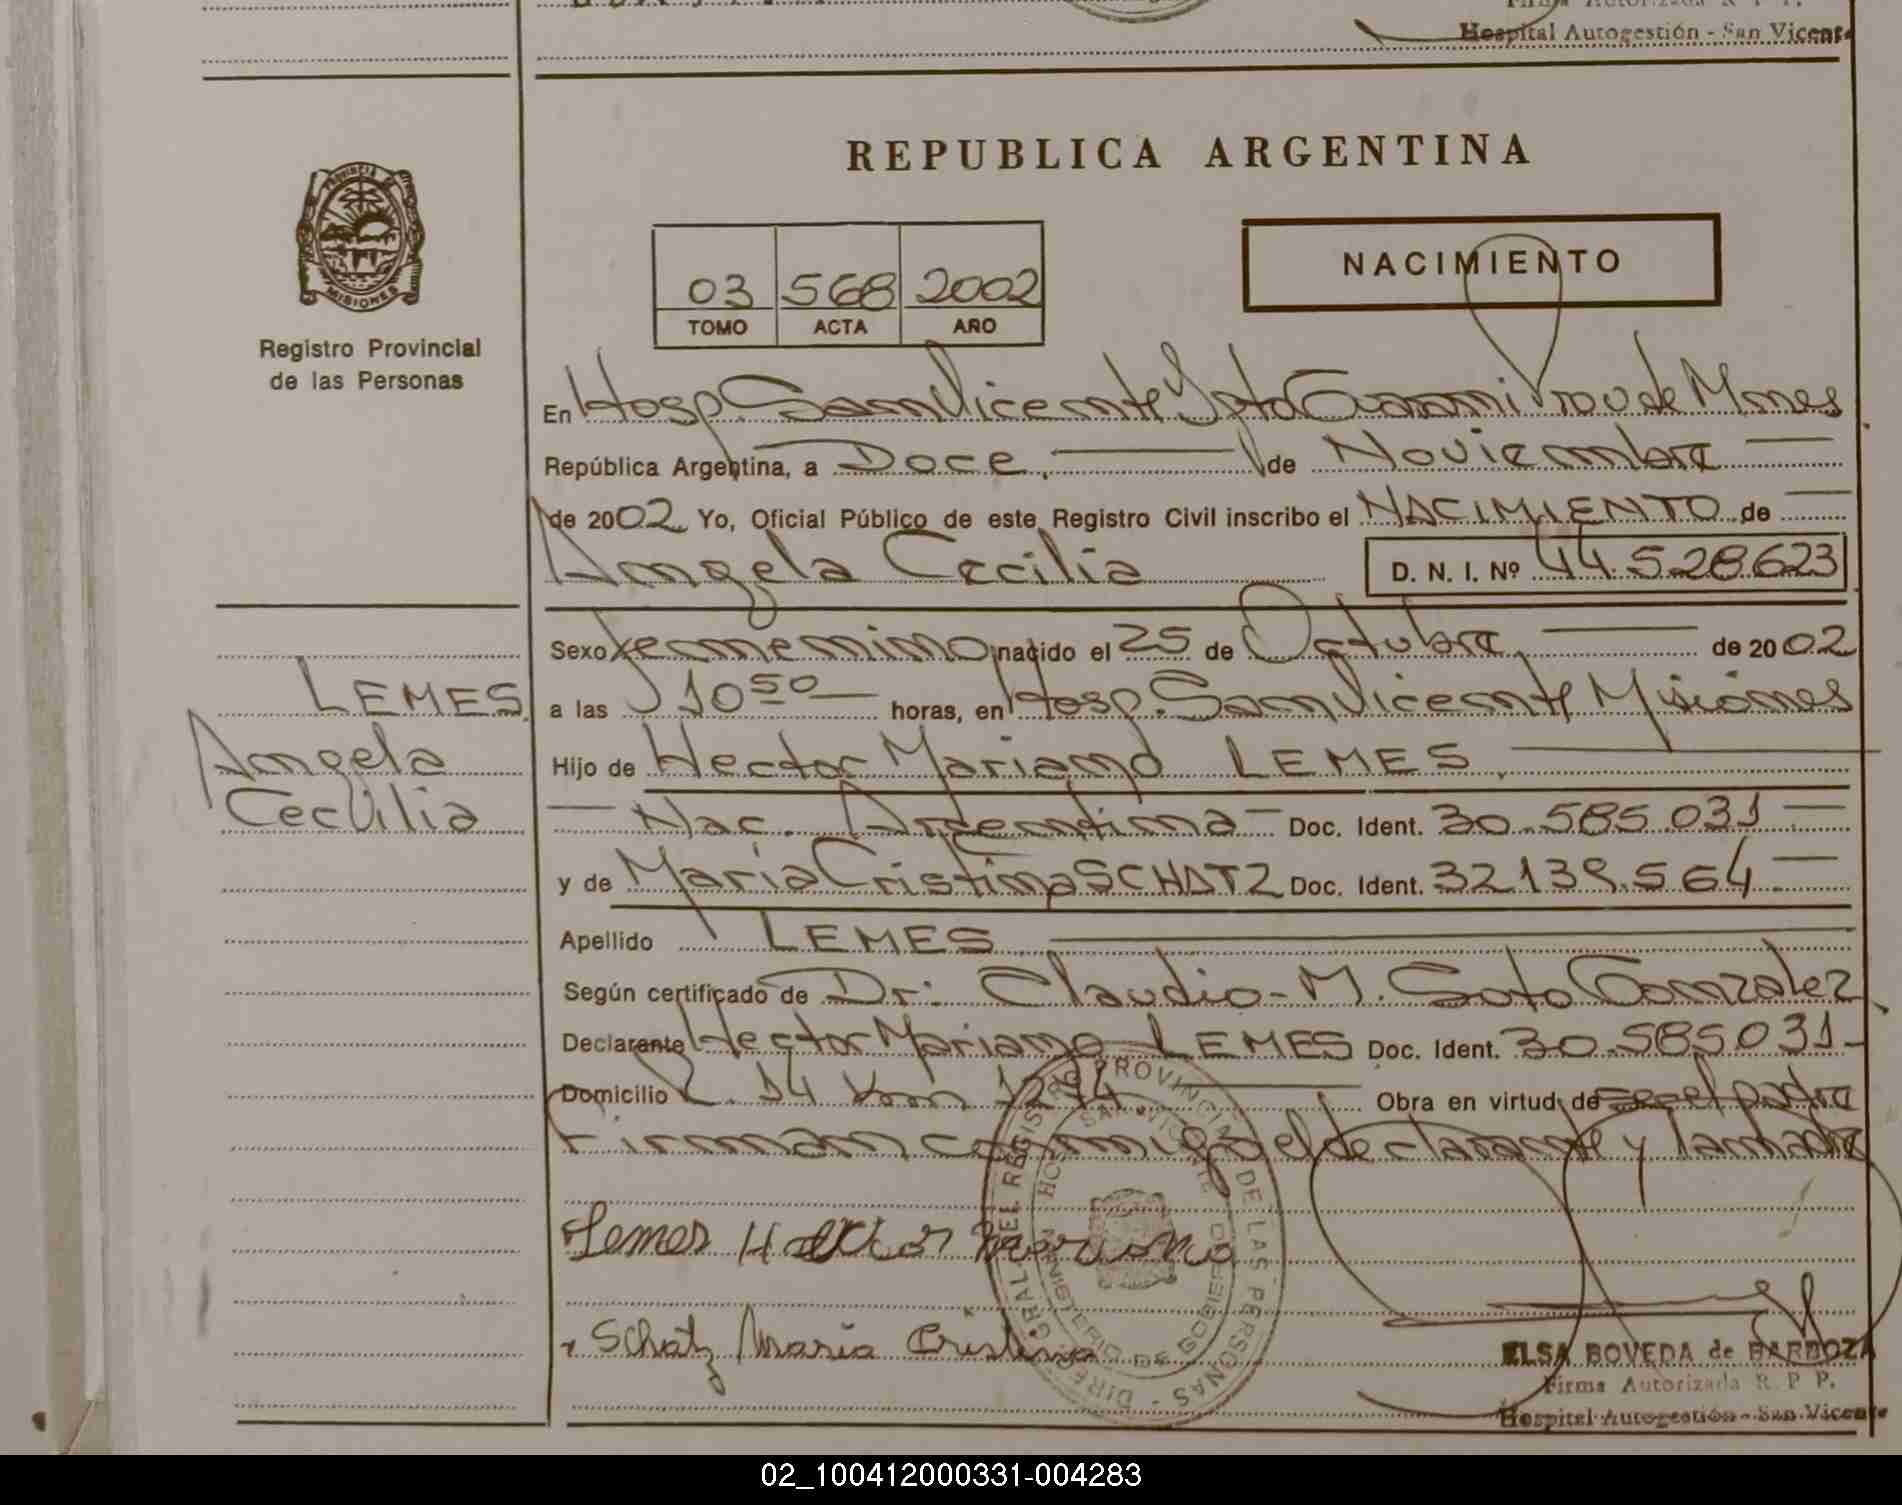 Hospital Autogestión - San Vicente
REPUBLICA ARGENTINA
PROVINCIA DE
MISIONES
Registro Provincial
de las Personas
03 568 2002
TOMO ACTA AÑO
NACIMIENTO
En Hosp. San Vicente Dpto Guarani Prov de Mnes
República Argentina, a Doce de Noviembre
de 2002 Yo, Oficial Público de este Registro Civil inscribo el NACIMIENTO de
Angela Cecilia D. N. I. Nº 44.528.623
Sexo femenino nacido el 25 de Octubre de 2002
LEMES
a las 10 50 horas, en Hosp. San Vicente Misiones
Angela
Hijo de Hector Mariano LEMES
Cecilia
Nac. Argentina Doc. Ident. 30.585.031
y de Maria Cristina SCHATZ Doc. Ident. 32.139.564
Apellido LEMES
Según certificado de Dr. Claudio M. Soto Gonzalez
Declarante Hector Mariano LEMES Doc. Ident. 30.585.031
Domicilio R. 14 Km 1274 Obra en virtud de ser el padre
Firman conmigo el declarante y la madre
Lemes Hector Mariano
Schatz Maria Cristina
DIREC. GRAL. DEL REGISTRO PROVINCIAL DE LAS PERSONAS
MINISTERIO DE GOBIERNO
ELSA BOVEDA de BARBOZA
Firma Autorizada R. P. P.
Hospital Autogestión - San Vicente
02_100412000331-004283